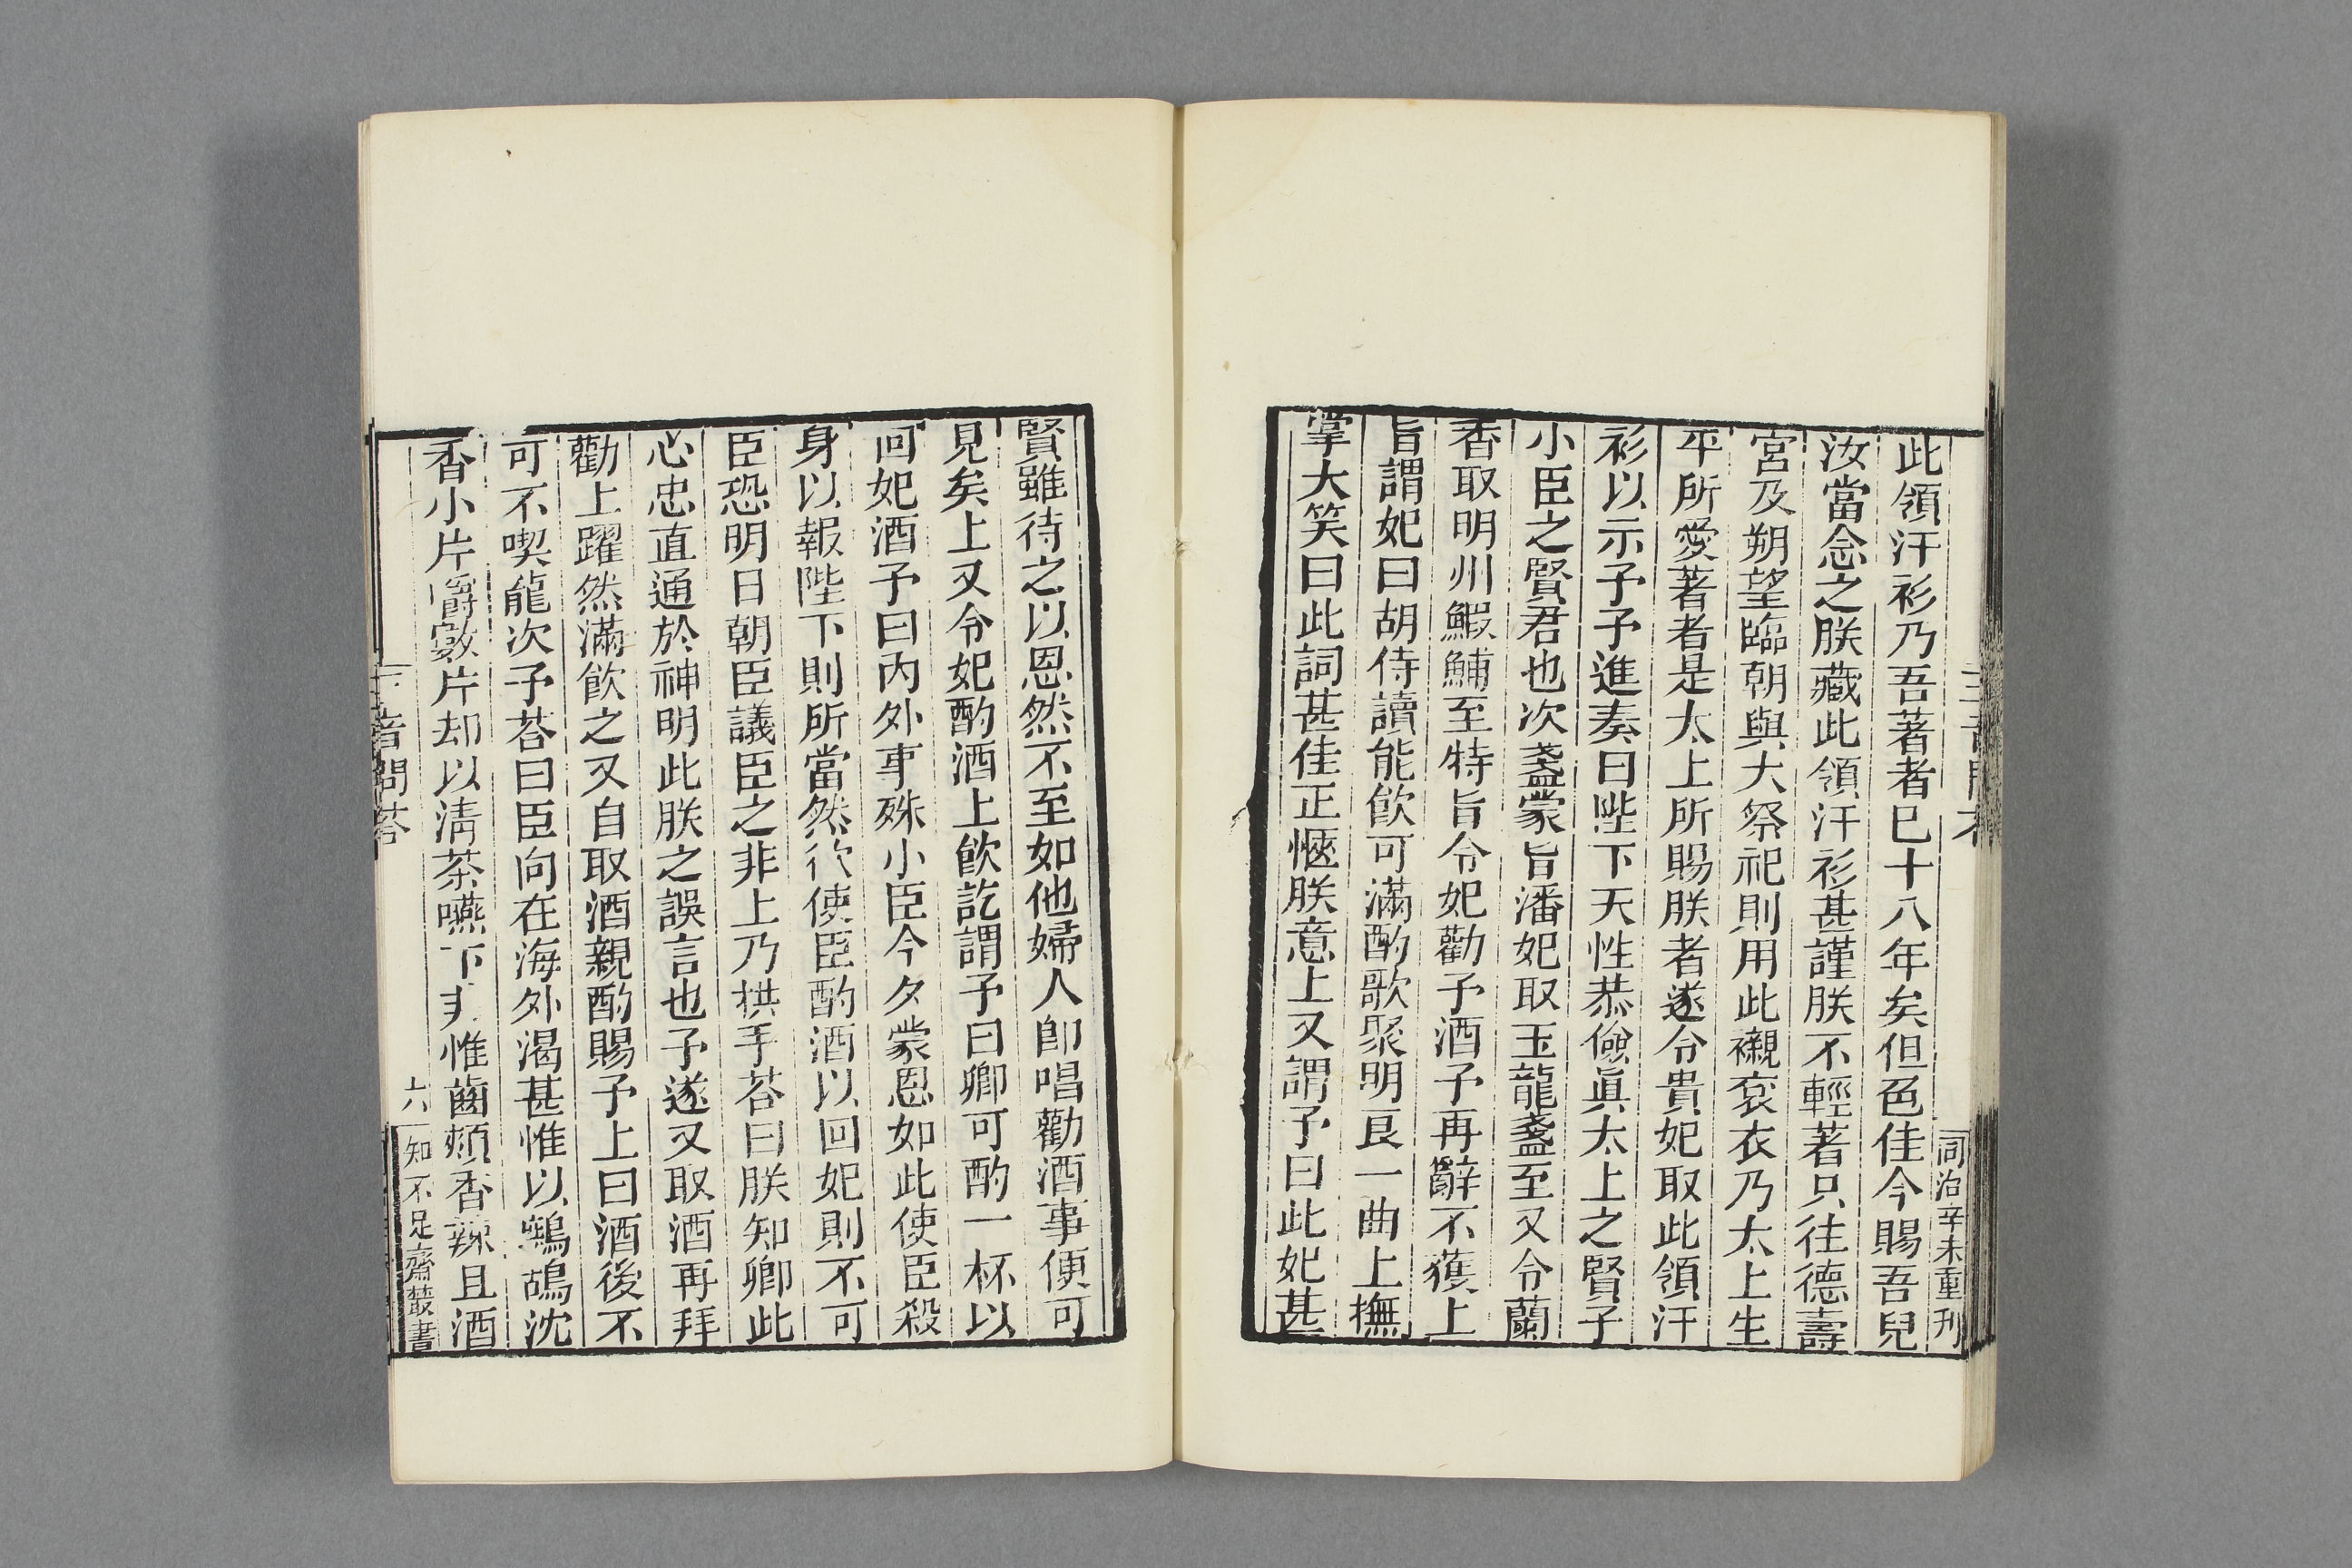 同治辛未重刋
此領汗衫乃吾著者巳十八年矣但色佳今賜吾兒
汝當念之朕藏此領汗衫甚謹朕不輕著只往德壽
宮及朔望臨朝與大祭祀則用此襯衮衣乃太上生
平所愛著者是太上所賜朕者遂令貴妃取此領汗
衫以示予予進奏曰陛下天性恭儉眞太上之賢子
小臣之賢君也次盞蒙旨潘妃取玉龍盞至又令蘭
香取明州鰕鯆至特旨令妃勸予酒予再辭不獲上
旨謂妃曰胡侍讀能飮可滿酌歌聚明良一曲上撫
掌大笑曰此詞甚佳正愜朕意上又謂予曰此妃甚
賢雖待之以恩然不至如他婦人卽唱勸酒事便可
見矣上又令妃酌酒上飮訖謂予曰卿可酌一杯以
回妃酒予曰內外事殊小臣今夕蒙恩如此使臣殺
身以報陛下則所當然欲使臣酌酒以回妃則不可
臣恐明日朝臣議臣之非上乃拱手荅曰朕知卿此
心忠直通於神明此朕之誤言也予遂又取酒再拜
勸上躍然滿飮之又自取酒親酌賜予上曰酒後不
可不喫龍次予荅曰臣向在海外渴甚惟以鷓鴣沈
香小片嚼數片却以淸茶嚥下非惟齒頰香辣且酒
音問荅
六
知不足齋叢書